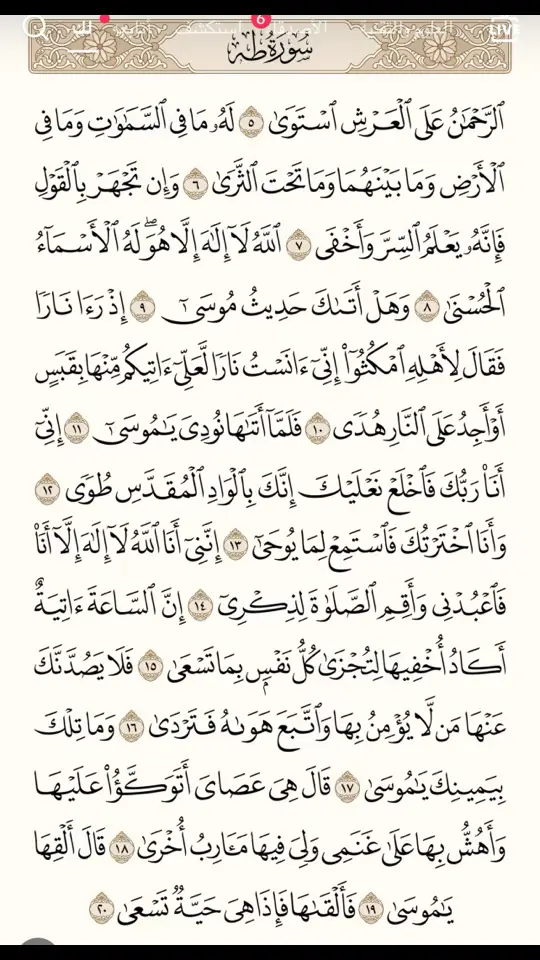 LIVE
6
لك
سُورَةُ طه
ٱلرَّحْمَٰنُ عَلَى ٱلْعَرْشِ ٱسْتَوَىٰ ٥ لَهُۥ مَا فِي ٱلسَّمَٰوَٰتِ وَمَا فِي
ٱلْأَرْضِ وَمَا بَيْنَهُمَا وَمَا تَحْتَ ٱلثَّرَىٰ ٦ وَإِن تَجْهَرْ بِٱلْقَوْلِ
فَإِنَّهُۥ يَعْلَمُ ٱلسِّرَّ وَأَخْفَى ٧ ٱللَّهُ لَآ إِلَٰهَ إِلَّا هُوَۖ لَهُ ٱلْأَسْمَآءُ
ٱلْحُسْنَىٰ ٨ وَهَلْ أَتَىٰكَ حَدِيثُ مُوسَىٰٓ ٩ إِذْ رَءَا نَارًا
فَقَالَ لِأَهْلِهِ ٱمْكُثُوٓا۟ إِنِّىٓ ءَانَسْتُ نَارًا لَّعَلِّىٓ ءَاتِيكُم مِّنْهَا بِقَبَسٍ
أَوْ أَجِدُ عَلَى ٱلنَّارِ هُدًى ١٠ فَلَمَّآ أَتَىٰهَا نُودِىَ يَٰمُوسَىٰٓ ١١ إِنِّىٓ
أَنَا۠ رَبُّكَ فَٱخْلَعْ نَعْلَيْكَ إِنَّكَ بِٱلْوَادِ ٱلْمُقَدَّسِ طُوًى ١٢
وَأَنَا ٱخْتَرْتُكَ فَٱسْتَمِعْ لِمَا يُوحَىٰٓ ١٣ إِنَّنِىٓ أَنَا ٱللَّهُ لَآ إِلَٰهَ إِلَّآ أَنَا۠
فَٱعْبُدْنِى وَأَقِمِ ٱلصَّلَوٰةَ لِذِكْرِىٓ ١٤ إِنَّ ٱلسَّاعَةَ ءَاتِيَةٌ
أَكَادُ أُخْفِيهَا لِتُجْزَىٰ كُلُّ نَفْسٍۭ بِمَا تَسْعَىٰ ١٥ فَلَا يَصُدَّنَّكَ
عَنْهَا مَن لَّا يُؤْمِنُ بِهَا وَٱتَّبَعَ هَوَىٰهُ فَتَرْدَىٰ ١٦ وَمَا تِلْكَ
بِيَمِينِكَ يَٰمُوسَىٰ ١٧ قَالَ هِىَ عَصَاىَ أَتَوَكَّؤُا۟ عَلَيْهَا
وَأَهُشُّ بِهَا عَلَىٰ غَنَمِى وَلِىَ فِيهَا مَـَٔارِبُ أُخْرَىٰ ١٨ قَالَ أَلْقِهَا
يَٰمُوسَىٰ ١٩ فَأَلْقَىٰهَا فَإِذَا هِىَ حَيَّةٌ تَسْعَىٰ ٢٠